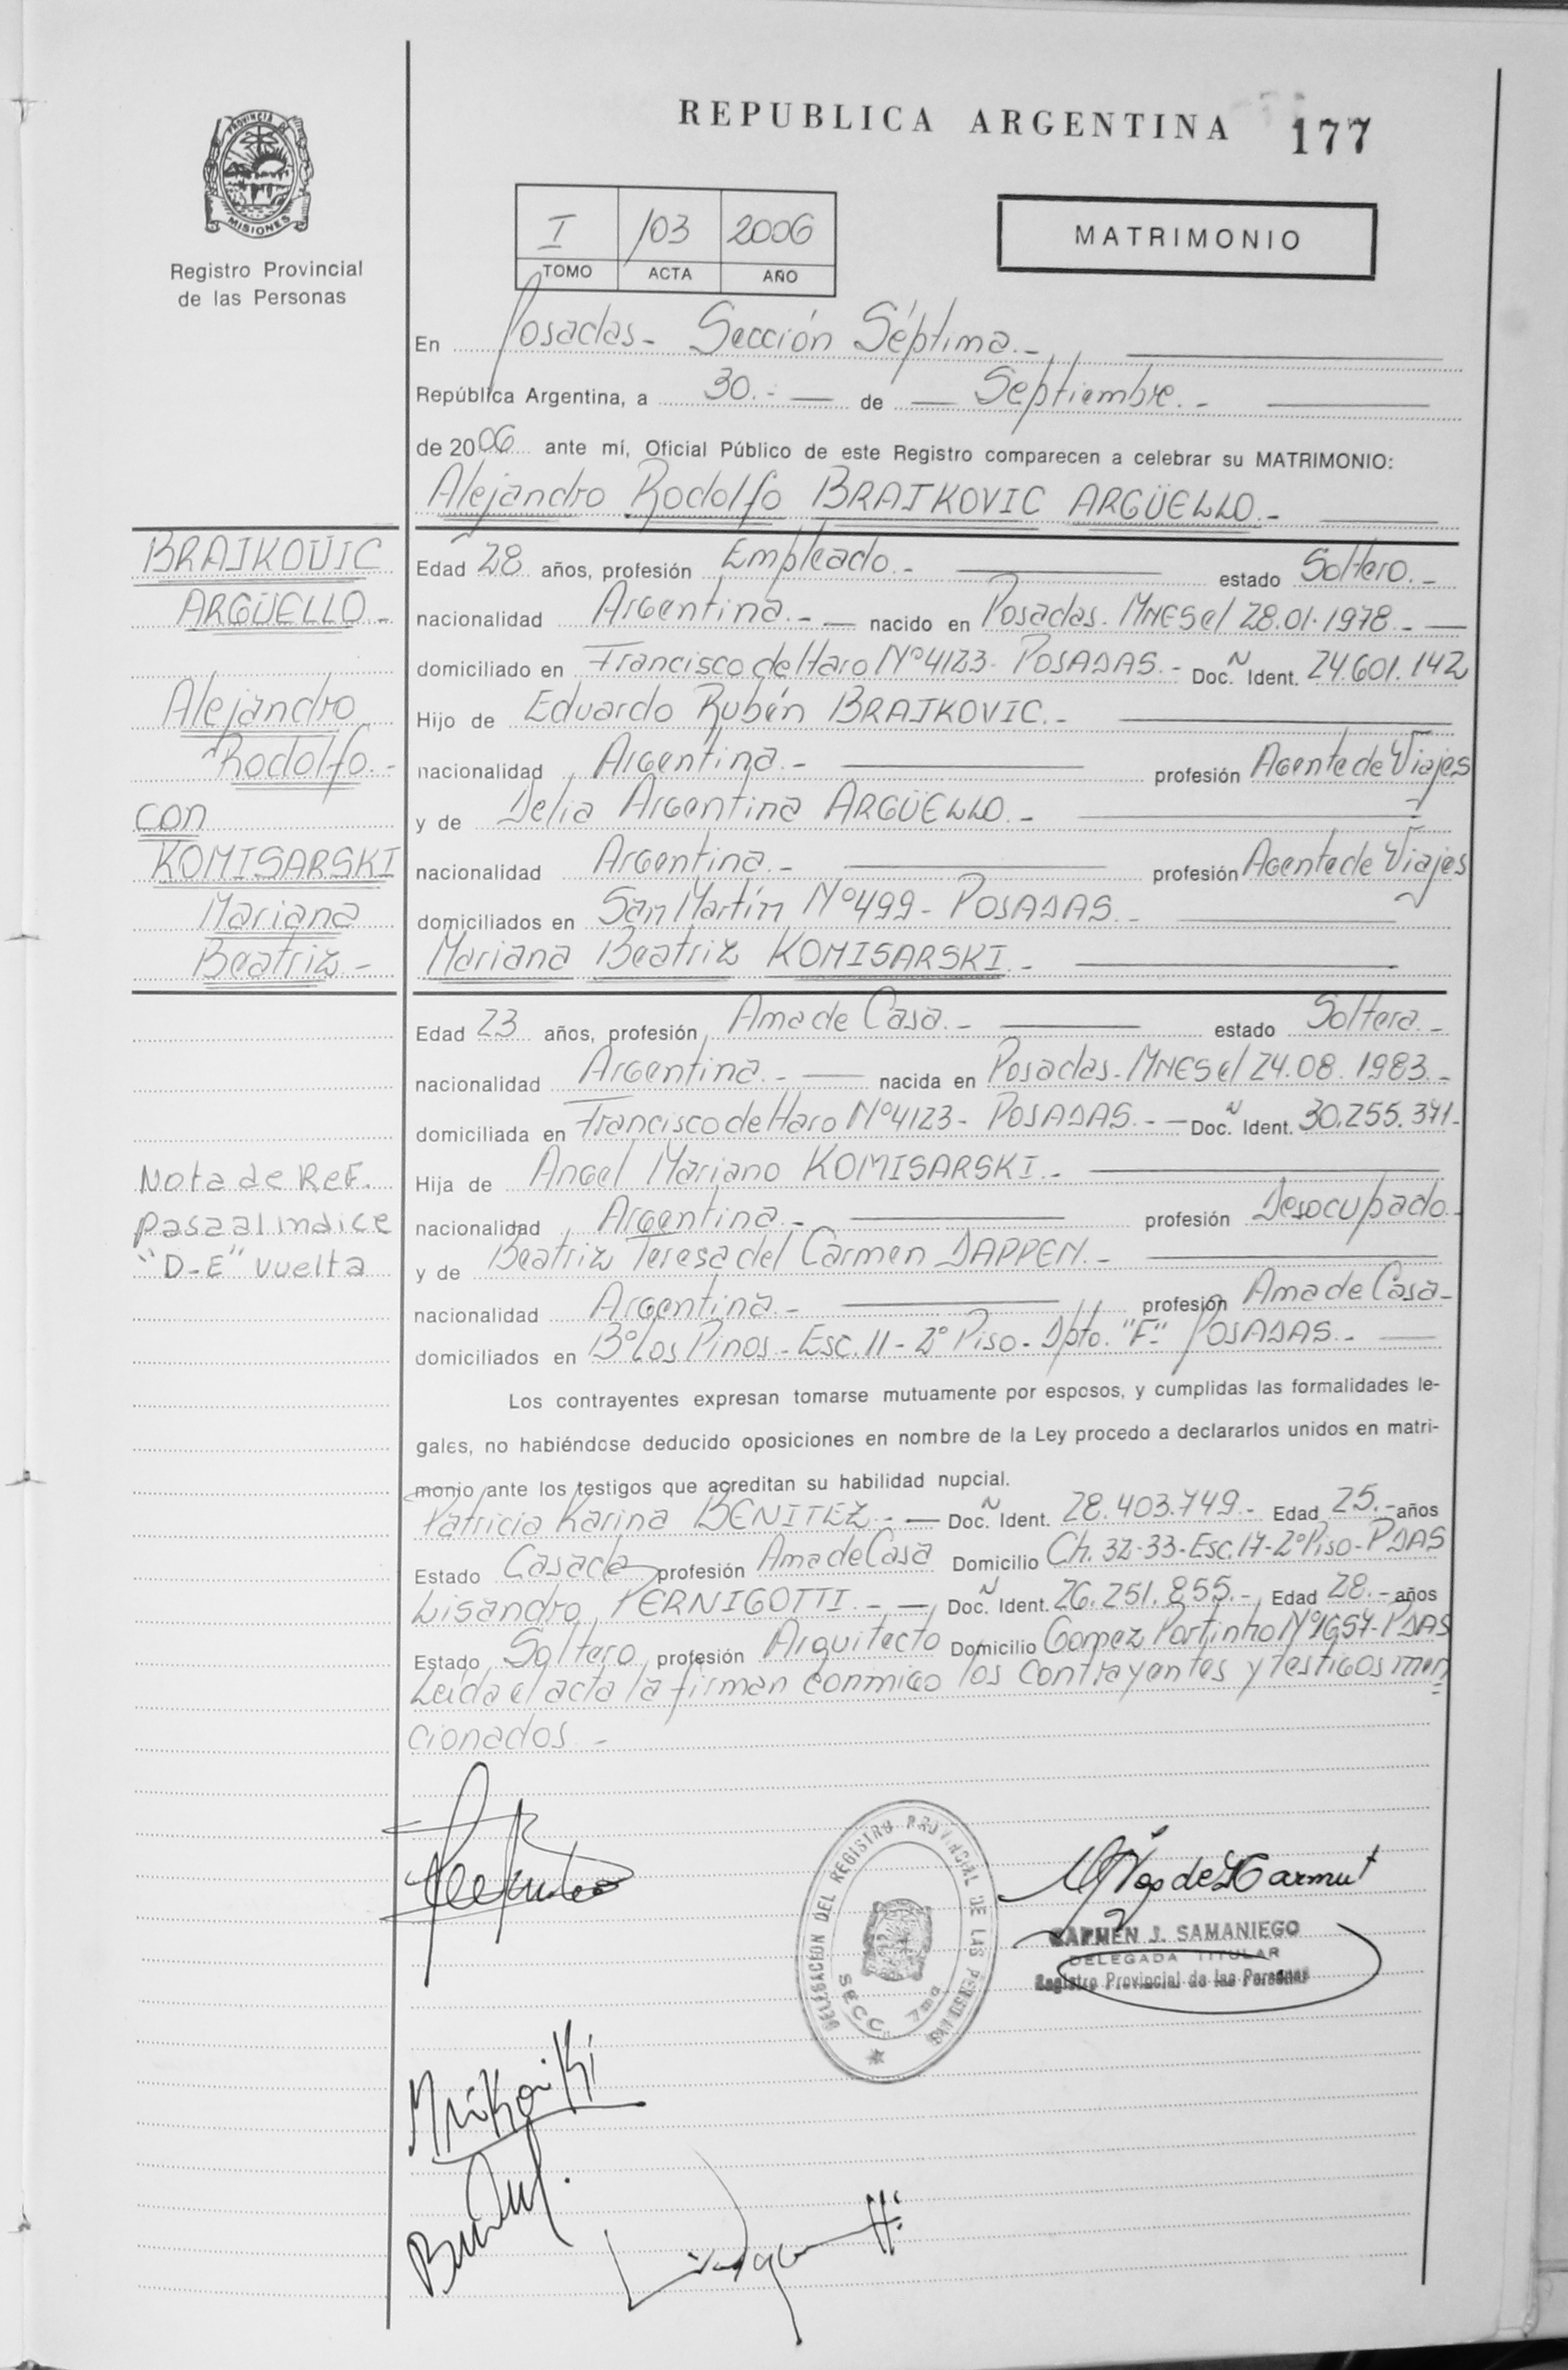 REPUBLICA ARGENTINA 177
PROVINCIA DE
MISIONES
Registro Provincial
de las Personas
I 103 2006
TOMO ACTA AÑO
MATRIMONIO
En Posadas - Sección Séptima.-
República Argentina, a 30.- de Septiembre.-
de 2006 ante mí, Oficial Público de este Registro comparecen a celebrar su MATRIMONIO:
Alejandro Rodolfo BRAJKOVIC ARGÜELLO.-
BRAJKOVIC
ARGÜELLO -
Alejandro
Rodolfo.-
con
KOMISARSKI
Mariana
Beatriz -
Edad 28 años, profesión Empleado.- estado Soltero.-
nacionalidad Argentina.- nacido en Posadas. MNES el 28.01.1978.-
domiciliado en Francisco de Haro Nº 4123- POSADAS.- Doc. Ñ Ident. 24.601.142
Hijo de Eduardo Rubén BRAJKOVIC.-
nacionalidad Argentina.- profesión Agente de Viajes
y de Delia Argentina ARGÜELLO.-
nacionalidad Argentina.- profesión Agente de Viajes
domiciliados en San Martín Nº 499- POSADAS.-
Mariana Beatriz KOMISARSKI.-
Edad 23 años, profesión Ama de Casa.- estado Soltera.-
nacionalidad Argentina.- nacida en Posadas- MNES el 24.08.1983.-
domiciliada en Francisco de Haro Nº 4123- POSADAS.- Doc. Ñ Ident. 30.255.371-
Hija de Angel Mariano KOMISARSKI.-
nacionalidad Argentina.- profesión Desocupado.-
y de Beatriz Teresa del Carmen DAPPEN.-
nacionalidad Argentina.- profesión Ama de Casa-
domiciliados en Bº Los Pinos - Esc. 11 - 2º Piso - Dpto. "F"- POSADAS.-
Nota de Ref.
pasa al indice
"D-E" vuelta
Los contrayentes expresan tomarse mutuamente por esposos, y cumplidas las formalidades le-
gales, no habiéndose deducido oposiciones en nombre de la Ley procedo a declararlos unidos en matri-
monio ante los testigos que acreditan su habilidad nupcial.
Patricia Karina BENITEZ.- Doc. Ñ Ident. 28.403.749.- Edad 25.- años
Estado Casada profesión Ama de Casa Domicilio Ch. 32-33-Esc. 17-2º Piso-PDAS
Lisandro PERNIGOTTI.- Doc. Ñ Ident. 26.251.855.- Edad 28.- años
Estado Soltero profesión Arquitecto Domicilio Gomez Portinho Nº 1657-PDAS
Leida el acta la firman conmigo los contrayentes y testigos men
cionados.-
DELEGACION DEL REGISTRO PROVINCIAL DE LAS PERSONAS
SECC. 7ma
CARMEN J. SAMANIEGO
DELEGADA TITULAR
Registro Provincial de las Personas